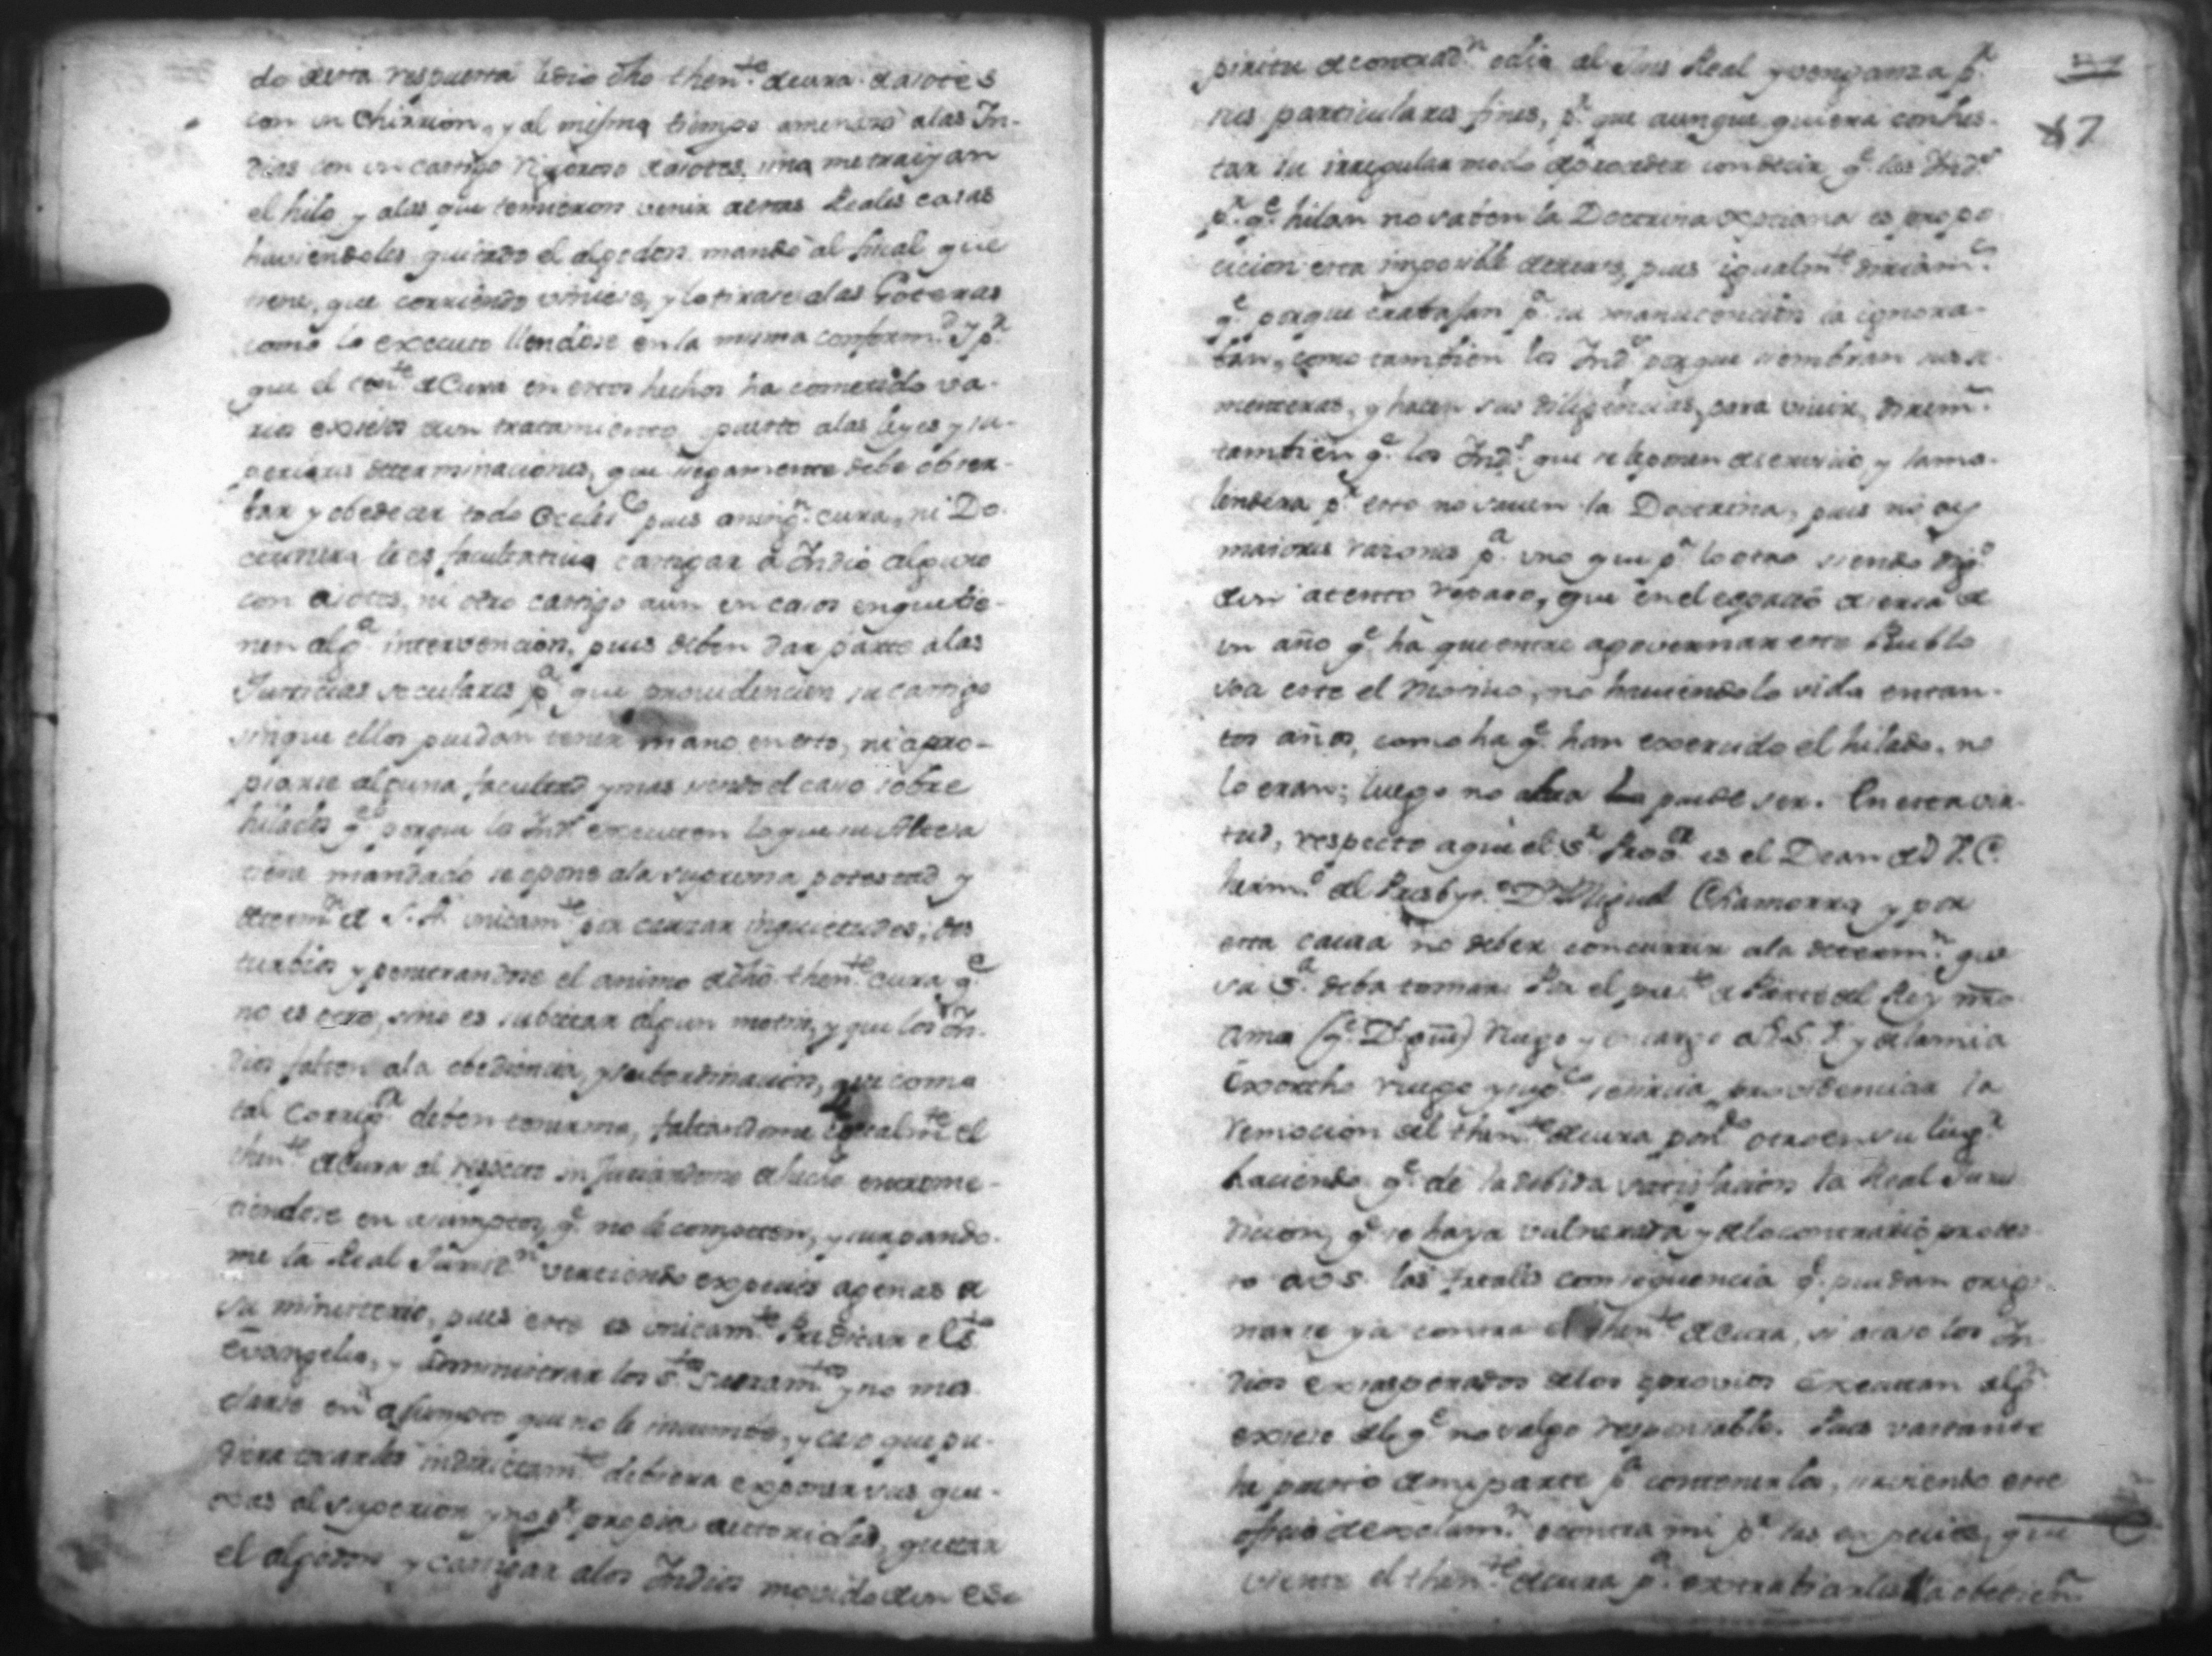 do desta respuesta ledio dho thente decura dasotes
con un Chirrion, y al mismo tiempo amenasó alas In-
dias con un castigo rigoroso deasotes, me traiyan
el hilo y alas que temieron venir aestas Reales casas
haviendoles quitado el algodon mandó al fiscal que
que corriendo viniese, y lo tirase alas Goteras
como lo executo llendose en la misma conformd Y pr
que el tente deCura en estos hechos ha cometido va-
rios exsesos deun tratamiento puesto alas leyes y su-
periores determinaciones, que siegamente debe obser-
bar y obedecer todo Ecclesco pues aningn cura, ni Do-
ctrinero le es facultativa castigar â Indio alguno
con asotes, ni otro castigo aun en casos enque tie-
nen alga intervencion, pues deben dar parte alas
Justicias seculares pa que providencien su castigo
sinque ellos puedan tener mano en esto, ni apro-
piarse alguna facultad y mas siendo el caso sobre
hilados qe porque los Inds executen loque su Alteza
tiene mandado se opone ala suprema potestad y
determn de S. A. unicamte por causar inquietudes, dis
turbios y penetrandose el animo de dho thente cura qe
no es otro, sino es sucitar algun motin, y que los In-
dios falten ala obediencia, y subordinacion, que como
tal Corregr deben tenerme, faltandome igualmte el
thente decura al respecto injuriandome de hecho entrome-
tiendose en asumptos qe no le competen, y usurpando-
me la Real Jurisdn vertiendo expecies agenas de
su ministerio, pues este es unicamte Predicar el Sto
Evangelio, y administrar los Stos Sacramtos y no mes-
clarse en asumpto que no le incumbe, y caso que pu-
diera tocarles indirectamte debiera exponer sus que-
xas al superior y no pr propia authoridad, quitar
el algodon y castigar alos Indios movido deun es-
piritu decontradn odio al Juis Real y venganza pr
sus particulares fines, pr que aunque quiera conhes-
tar su irregular modo deproceder condecir qe las Inds
pr qe hilan no saben la Doctrina xptiana es propo
cicion esta imposible decreerse, pues igualmte diriamos
qe porque trabajan pa su manutencion la ignora-
ban, como tambien los Inds porque siembran sus se-
menteras, y hacen sus diligencias para vivir, diremos
tambien qe los Inds que se leponen deservicio, y la mo-
lendera pr esto no saven la Doctrina, pues no ay
maiores razones pa uno que pa lo otro siendo digo
deun atento reparo, que en el espacio de cerca de
un año qe ha que entre agovernar este Pueblo
sea este el Motivo, no haviendolo sido entan-
tos años, como ha qe han exercido el hilado, no
lo eran; luego no aora lo puede ser. En esta vir-
tud, respecto aque el Sr Provor es el Dean de V. C.
hermo del Presbyo Dn Miguel Chamorro y por
esta causa no deber concurrir ala determn que
su Sa deba tomar. Por el prete de Parte del Rey nro
Amo (qe Ds gue) Ruego y encargo a V. S. Y. y dela mia
Exorto ruego y supco sesirvia providenciar la
remocion del thente decura ponido otro en su lugr
haciendo qe dé la debida satisfacion la Real Juris
dicion, qe se haya vulnerada y delo contrario protes-
to a V S. las fatales consequencia qe puedan origi-
narse ya contra el thente decura, si acaso los In-
dios exasperados delos oprovios executan algn
exseso delo qe no salgo responsable. Pues vastante
he puesto demi parte pa contenerlos, haviendo este
contra mi pr las expecies, que
vierte el thente decura pa extraviarlos la obedien
87